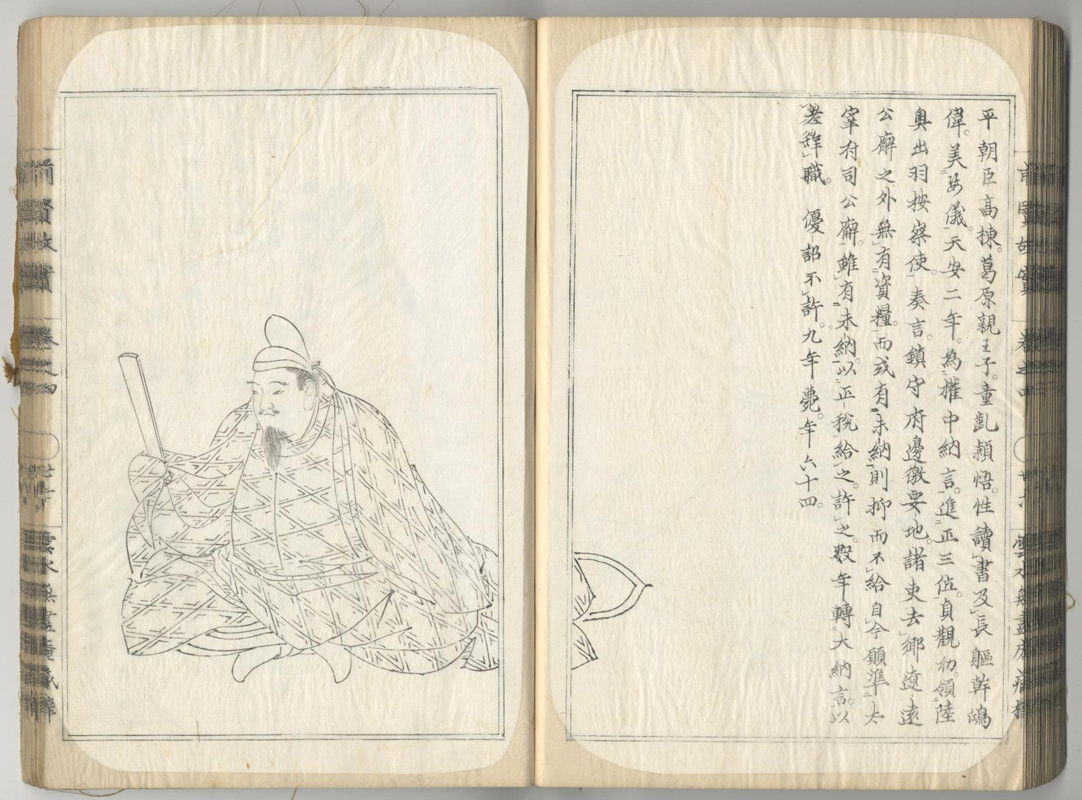 平朝臣高棟。葛原親王子。童齓頴悟。性讀書。及長軀幹鴻
偉。美姿儀。天安二年。為權中納言。進正三位。貞觀初。領陸
奥出羽按察使。奏言。鎮守府邊徼要地。諸吏去鄉遼遠
公廨之外。無有資糧。而或有未納。則抑而不給。自今願準太
宰府司公廨。雖有未納。以正稅給之。許之。数年轉大納言。以
老辞職。優詔不許。九年薨。年六十四。
前賢故實 卷之四
前賢故實 卷之四